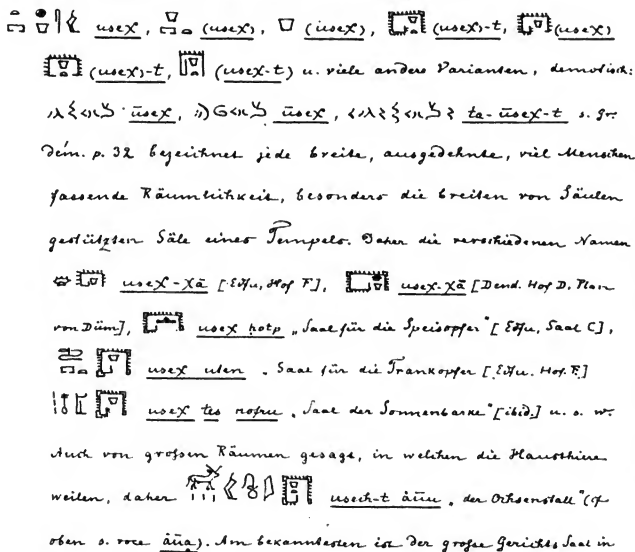 usex, (usex), (usex), (usex)-t, (usex)
(usex)-t, (usex-t) u. viele andere Varianten, demotisch:
ūsex, ūsex, ta-ūsex-t s. gr.
dém. p. 32 bezeichnet jede breite, ausgedehnte, viel Menschen
fassende Räumlichkeit, besonders die breiten von Säulen
gestützten Säle eines Tempels. Daher die verschiedenen Namen
usex-χā [Edfu, Hof F], usex-χā [Dend. Hof D. Plan
von Düm], usex hotp „Saal für die Speisopfer" [Edfu, Saal C],
usex uten „Saal für die Trankopfer [Edfu. Hof. F.]
usex tes nofru „Saal der Sonnenbarke" [ibid.] u. s. w.
Auch von grofsen Räumen gesagt, in welchen die Hausthiere
weilen, daher usech-t āuu „der Ochsenstall" (cf
oben s. voce āua). Am bekanntesten ist der grofse Gerichts Saal in